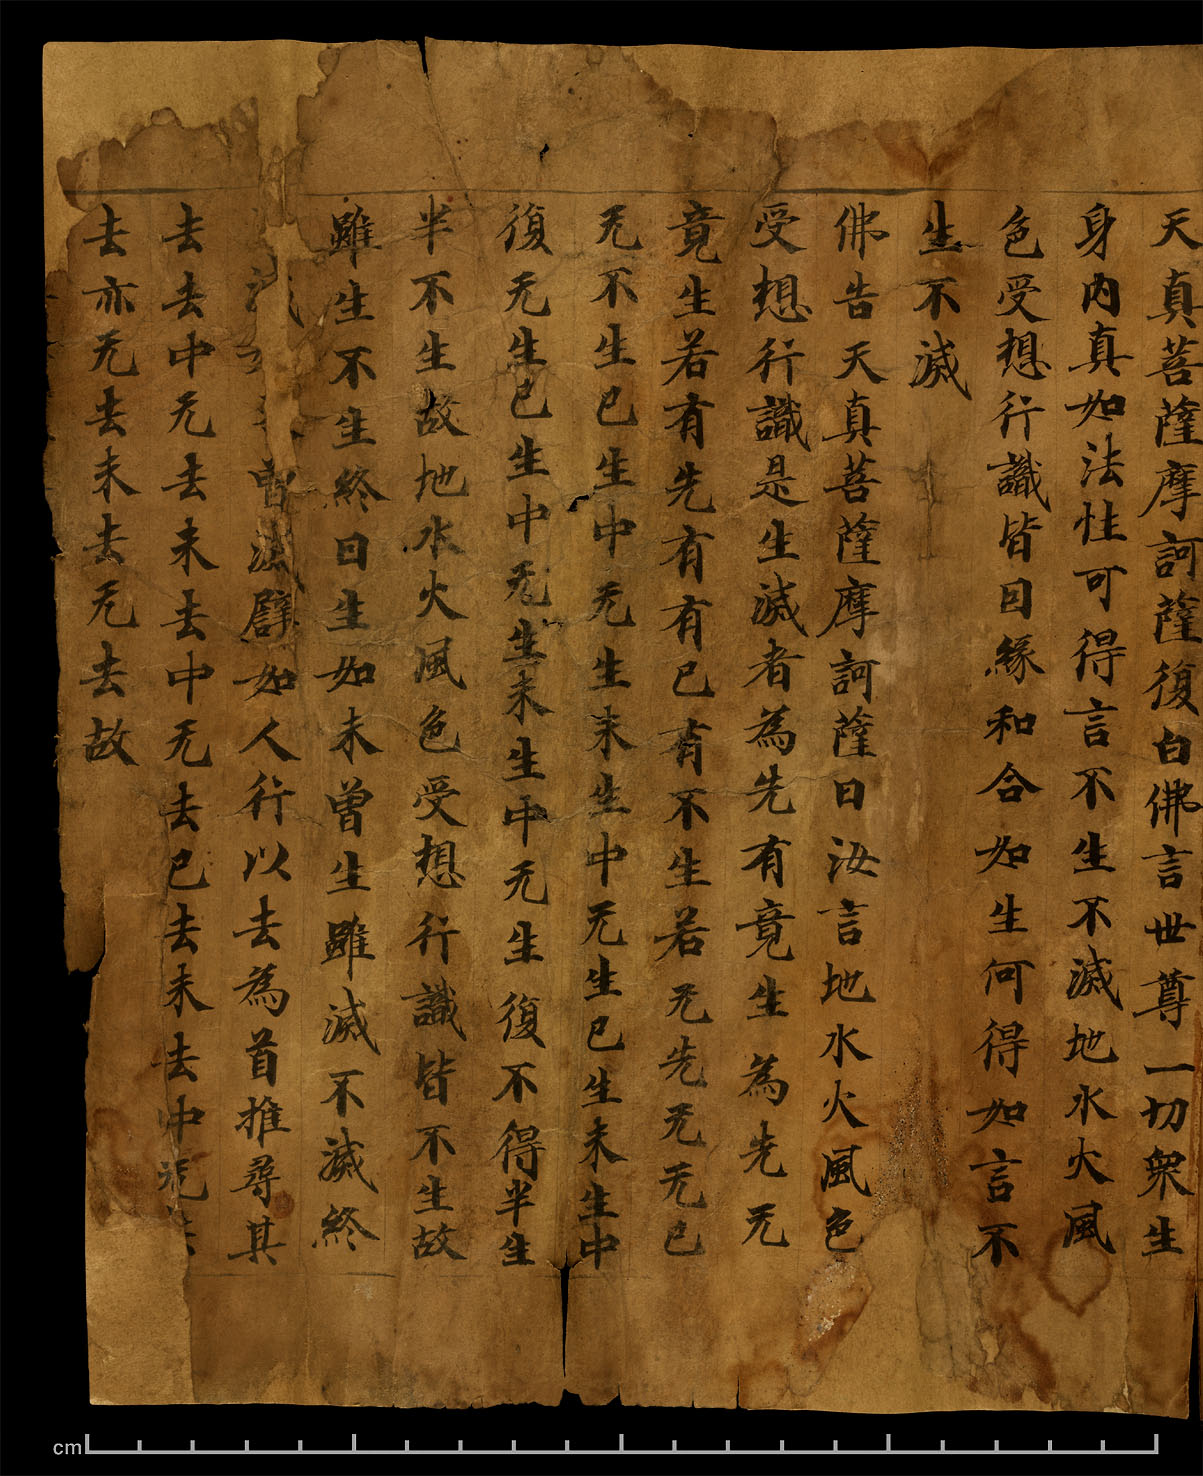 天真菩薩摩訶薩復白佛言世尊一切眾生
身內真如法性可得言不生不滅地水火風
色受想行識皆因緣和合如生何得如言不
生不滅
佛告天真菩薩摩訶薩曰汝言地水火風色
受想行識是生滅者為先有竟生為先无
竟生若有先有有已有不生若无先无无已
无不生已生中无生未生中无生已生未生中
復无生已生中无生未生中无生復不得半生
半不生故地水火風色受想行識皆不生故
雖生不生終日生如未曾生雖滅不滅終
法譬如人行以去為首推尋其
去去中无去未去中无去已去未去中
去亦无去未去无去故
cm